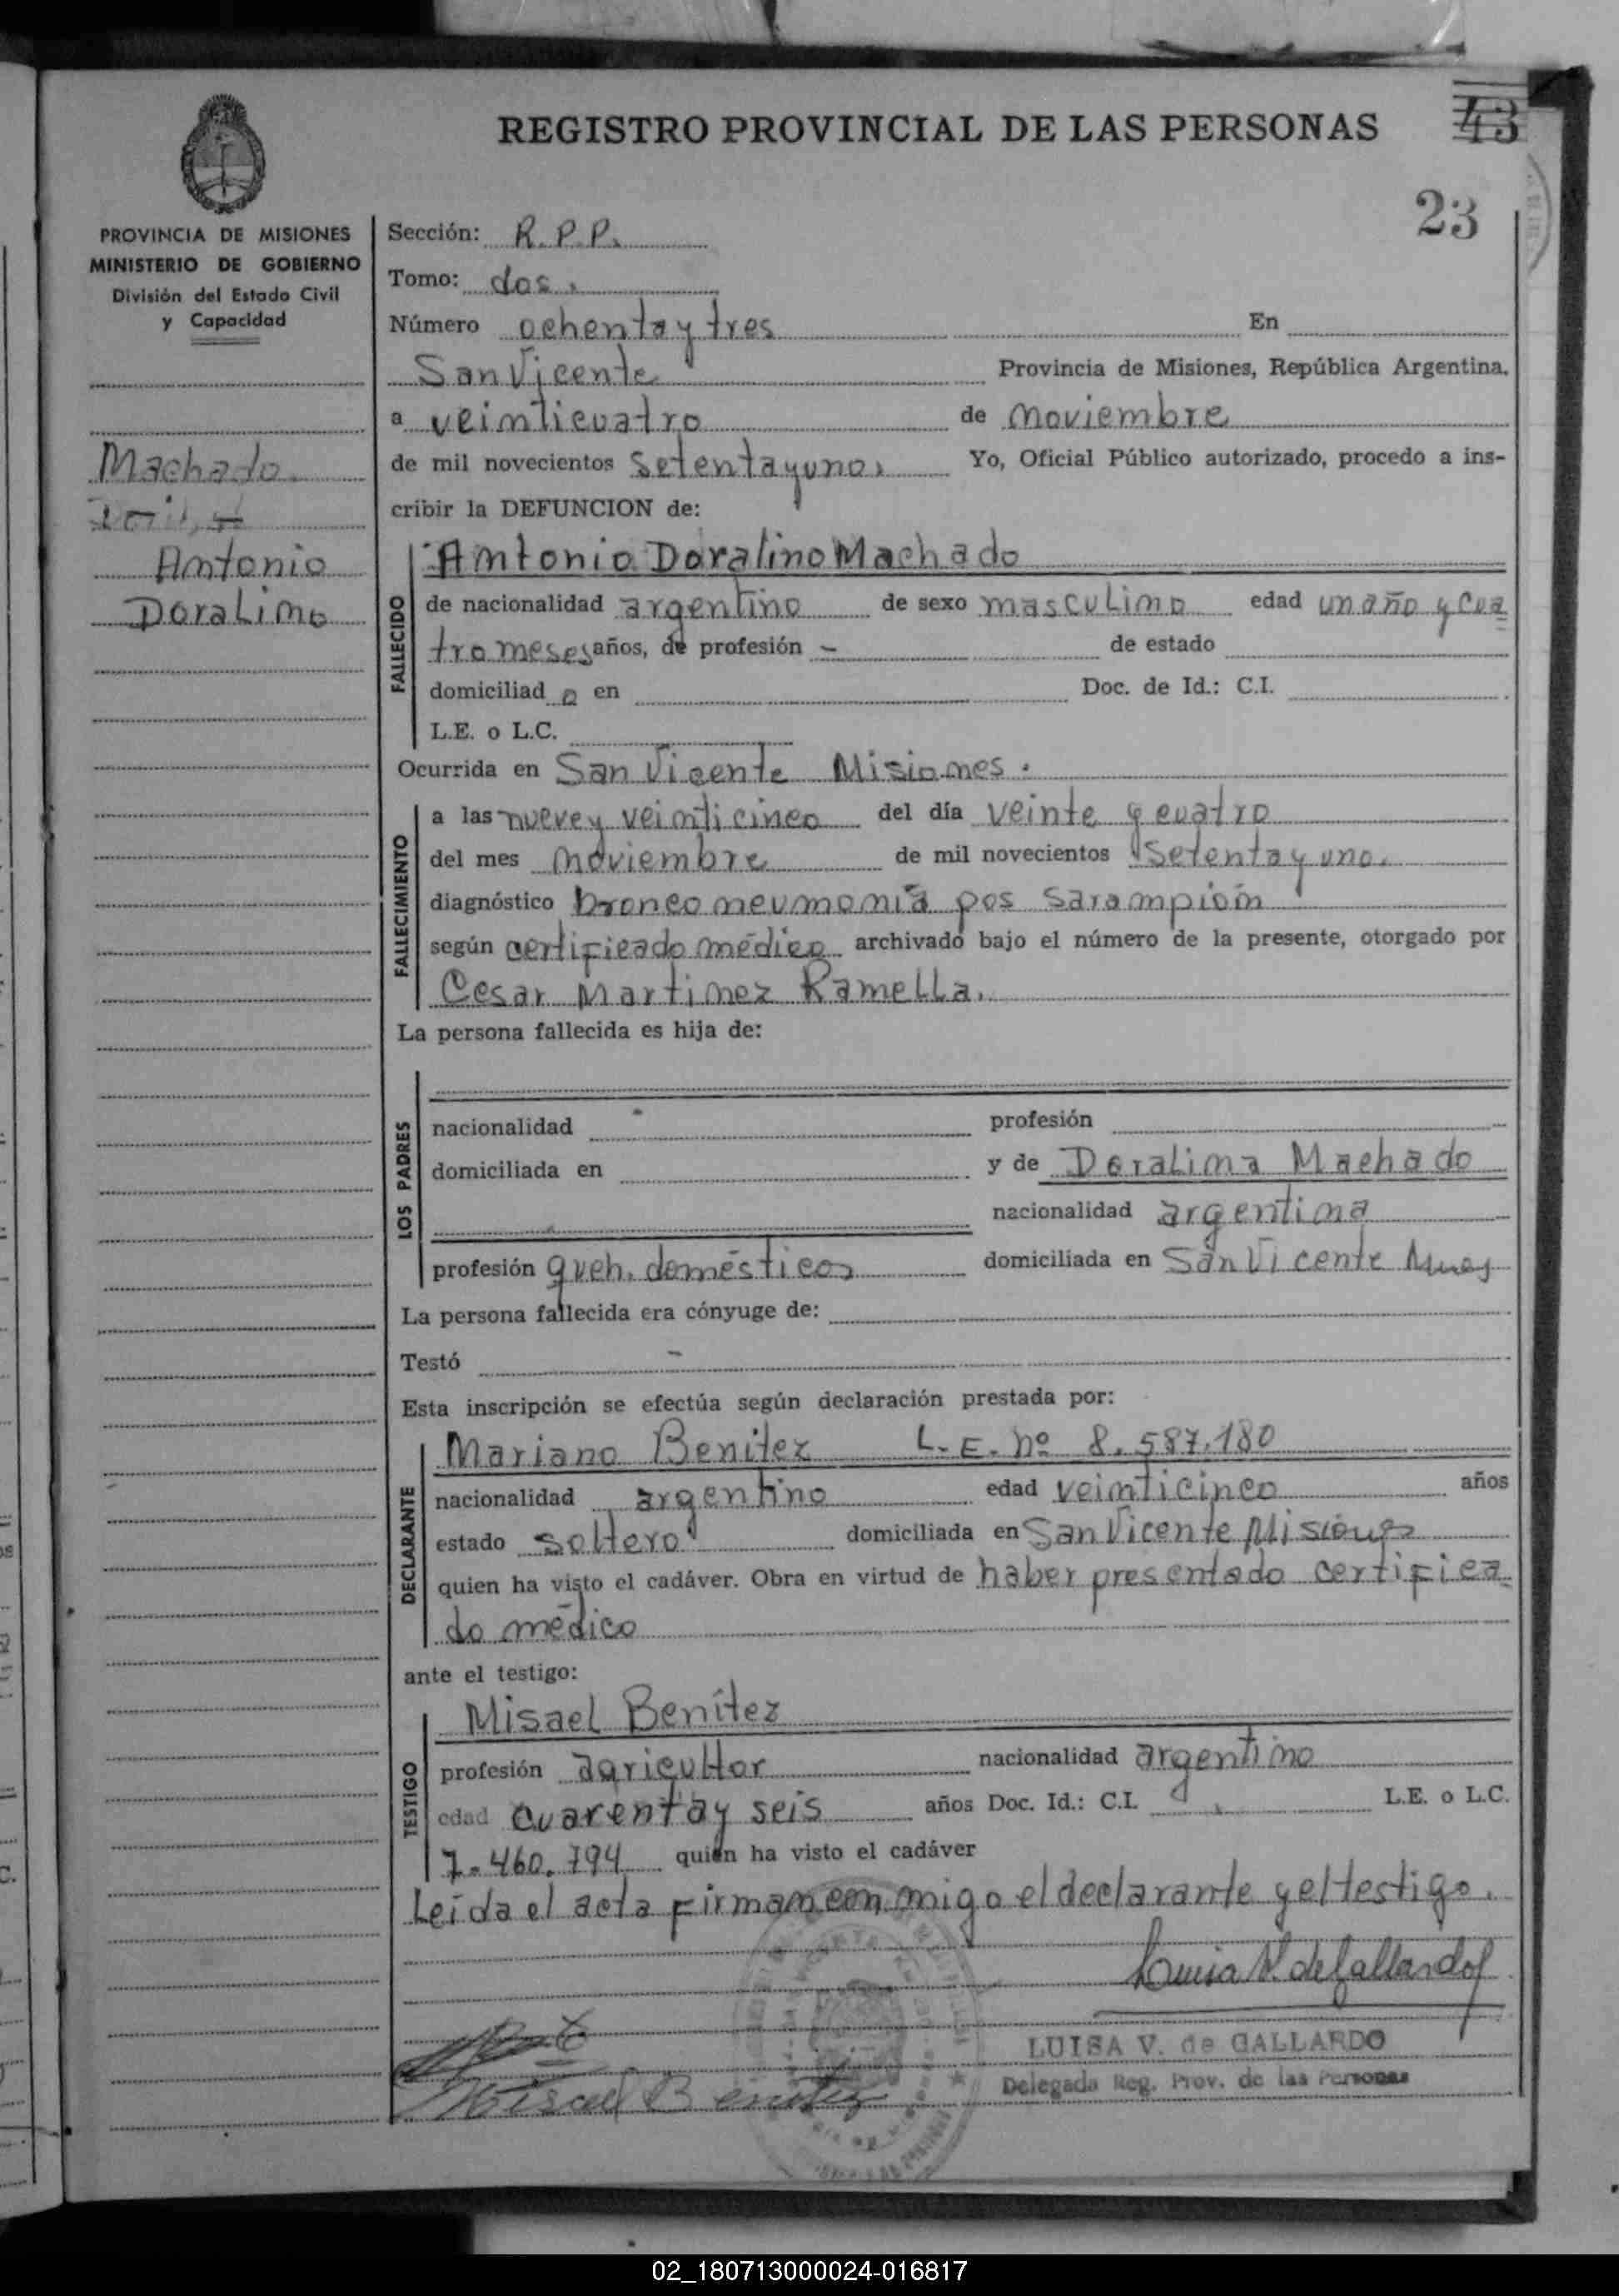 REGISTRO PROVINCIAL DE LAS PERSONAS
43
23
PROVINCIA DE MISIONES
MINISTERIO DE GOBIERNO
División del Estado Civil
y Capacidad
Machado
Antonio
Doralimo
Sección: R.P.P.
Tomo: dos.
Número ochenta y tres En
San Vicente Provincia de Misiones, República Argentina.
a veinticuatro de noviembre
de mil novecientos setenta y uno, Yo, Oficial Público autorizado, procedo a ins-
cribir la DEFUNCION de:
FALLECIDO
Antonio Doralino Machado
de nacionalidad argentino de sexo masculino edad un año y cua
tro meses años, de profesión - de estado
domiciliad o en Doc. de Id.: C.I.
L.E. o L.C.
Ocurrida en San Vicente Misiones.
FALLECIMIENTO
a las nueve y veinticinco del día veinte y cuatro
del mes noviembre de mil novecientos setenta y uno.
diagnóstico bronconeumonía pos sarampión
según certificado médico archivado bajo el número de la presente, otorgado por
Cesar Martinez Ramella.
La persona fallecida es hija de:
LOS PADRES
nacionalidad profesión
domiciliada en y de Doralima Machado
nacionalidad argentina
profesión queh. domésticos domiciliada en San Vicente Mnes
La persona fallecida era cónyuge de:
Testó -
Esta inscripción se efectúa según declaración prestada por:
DECLARANTE
Mariano Benítez L.E. nº 8.587.180
nacionalidad argentino edad veinticinco años
estado soltero domiciliada en San Vicente Misiones
quien ha visto el cadáver. Obra en virtud de haber presentado certifica
do médico
ante el testigo:
TESTIGO
Misael Benítez
profesión agricultor nacionalidad argentino
edad cuarenta y seis años Doc. Id.: C.I. L.E. o L.C.
7.460.794 quien ha visto el cadáver
Leída el acta firman conmigo el declarante y el testigo.
Luisa V. de Gallardo
LUISA V. de GALLARDO
Delegada Reg. Prov. de las Personas
Misael Benitez
02_180713000024-016817